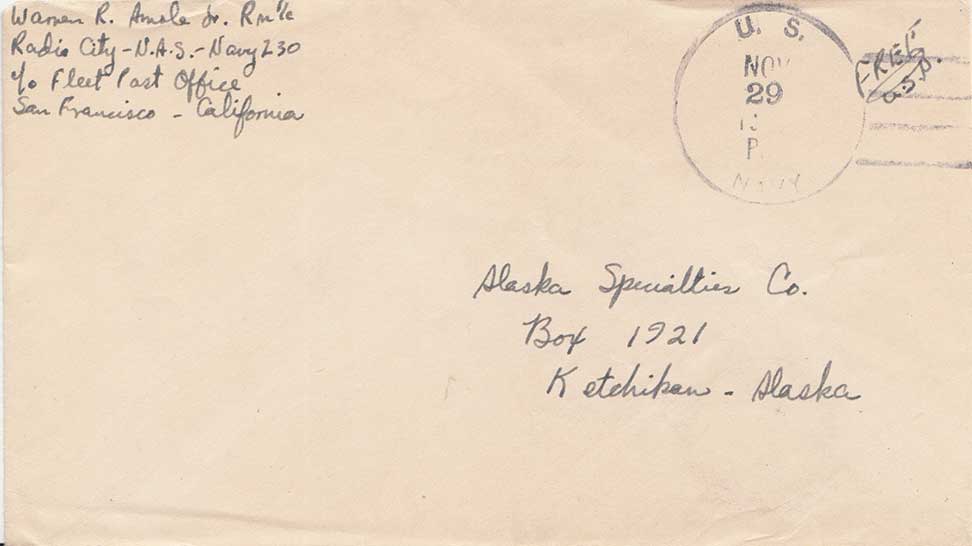 Warren R. Amole Jr. Rm 1/c
Radio City - N.A.S. - Navy 230
c/o Fleet Post Office
San Francisco - California
U. S.
NOV
29
P.
NAVY
FREE
Alaska Specialties Co.
Box 1921
Ketchikan - Alaska